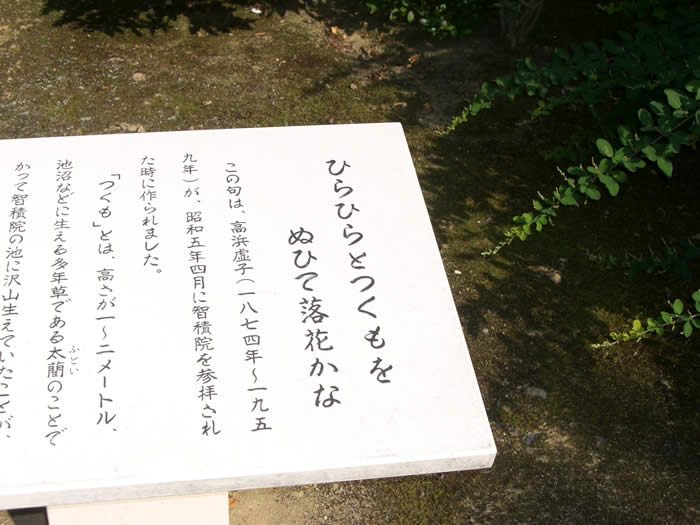 ひらひらとつくもを
ぬひて落花かな
この句は、高浜虚子(一八七四年〜一九五
九年)が、昭和五年四月に智積院を参拝され
た時に作られました。
「つくも」とは、高さが一〜二メートル、
池沼などに生える多年草である太藺のことで
ふとい
かつて智積院の池に沢山生えていたことが、